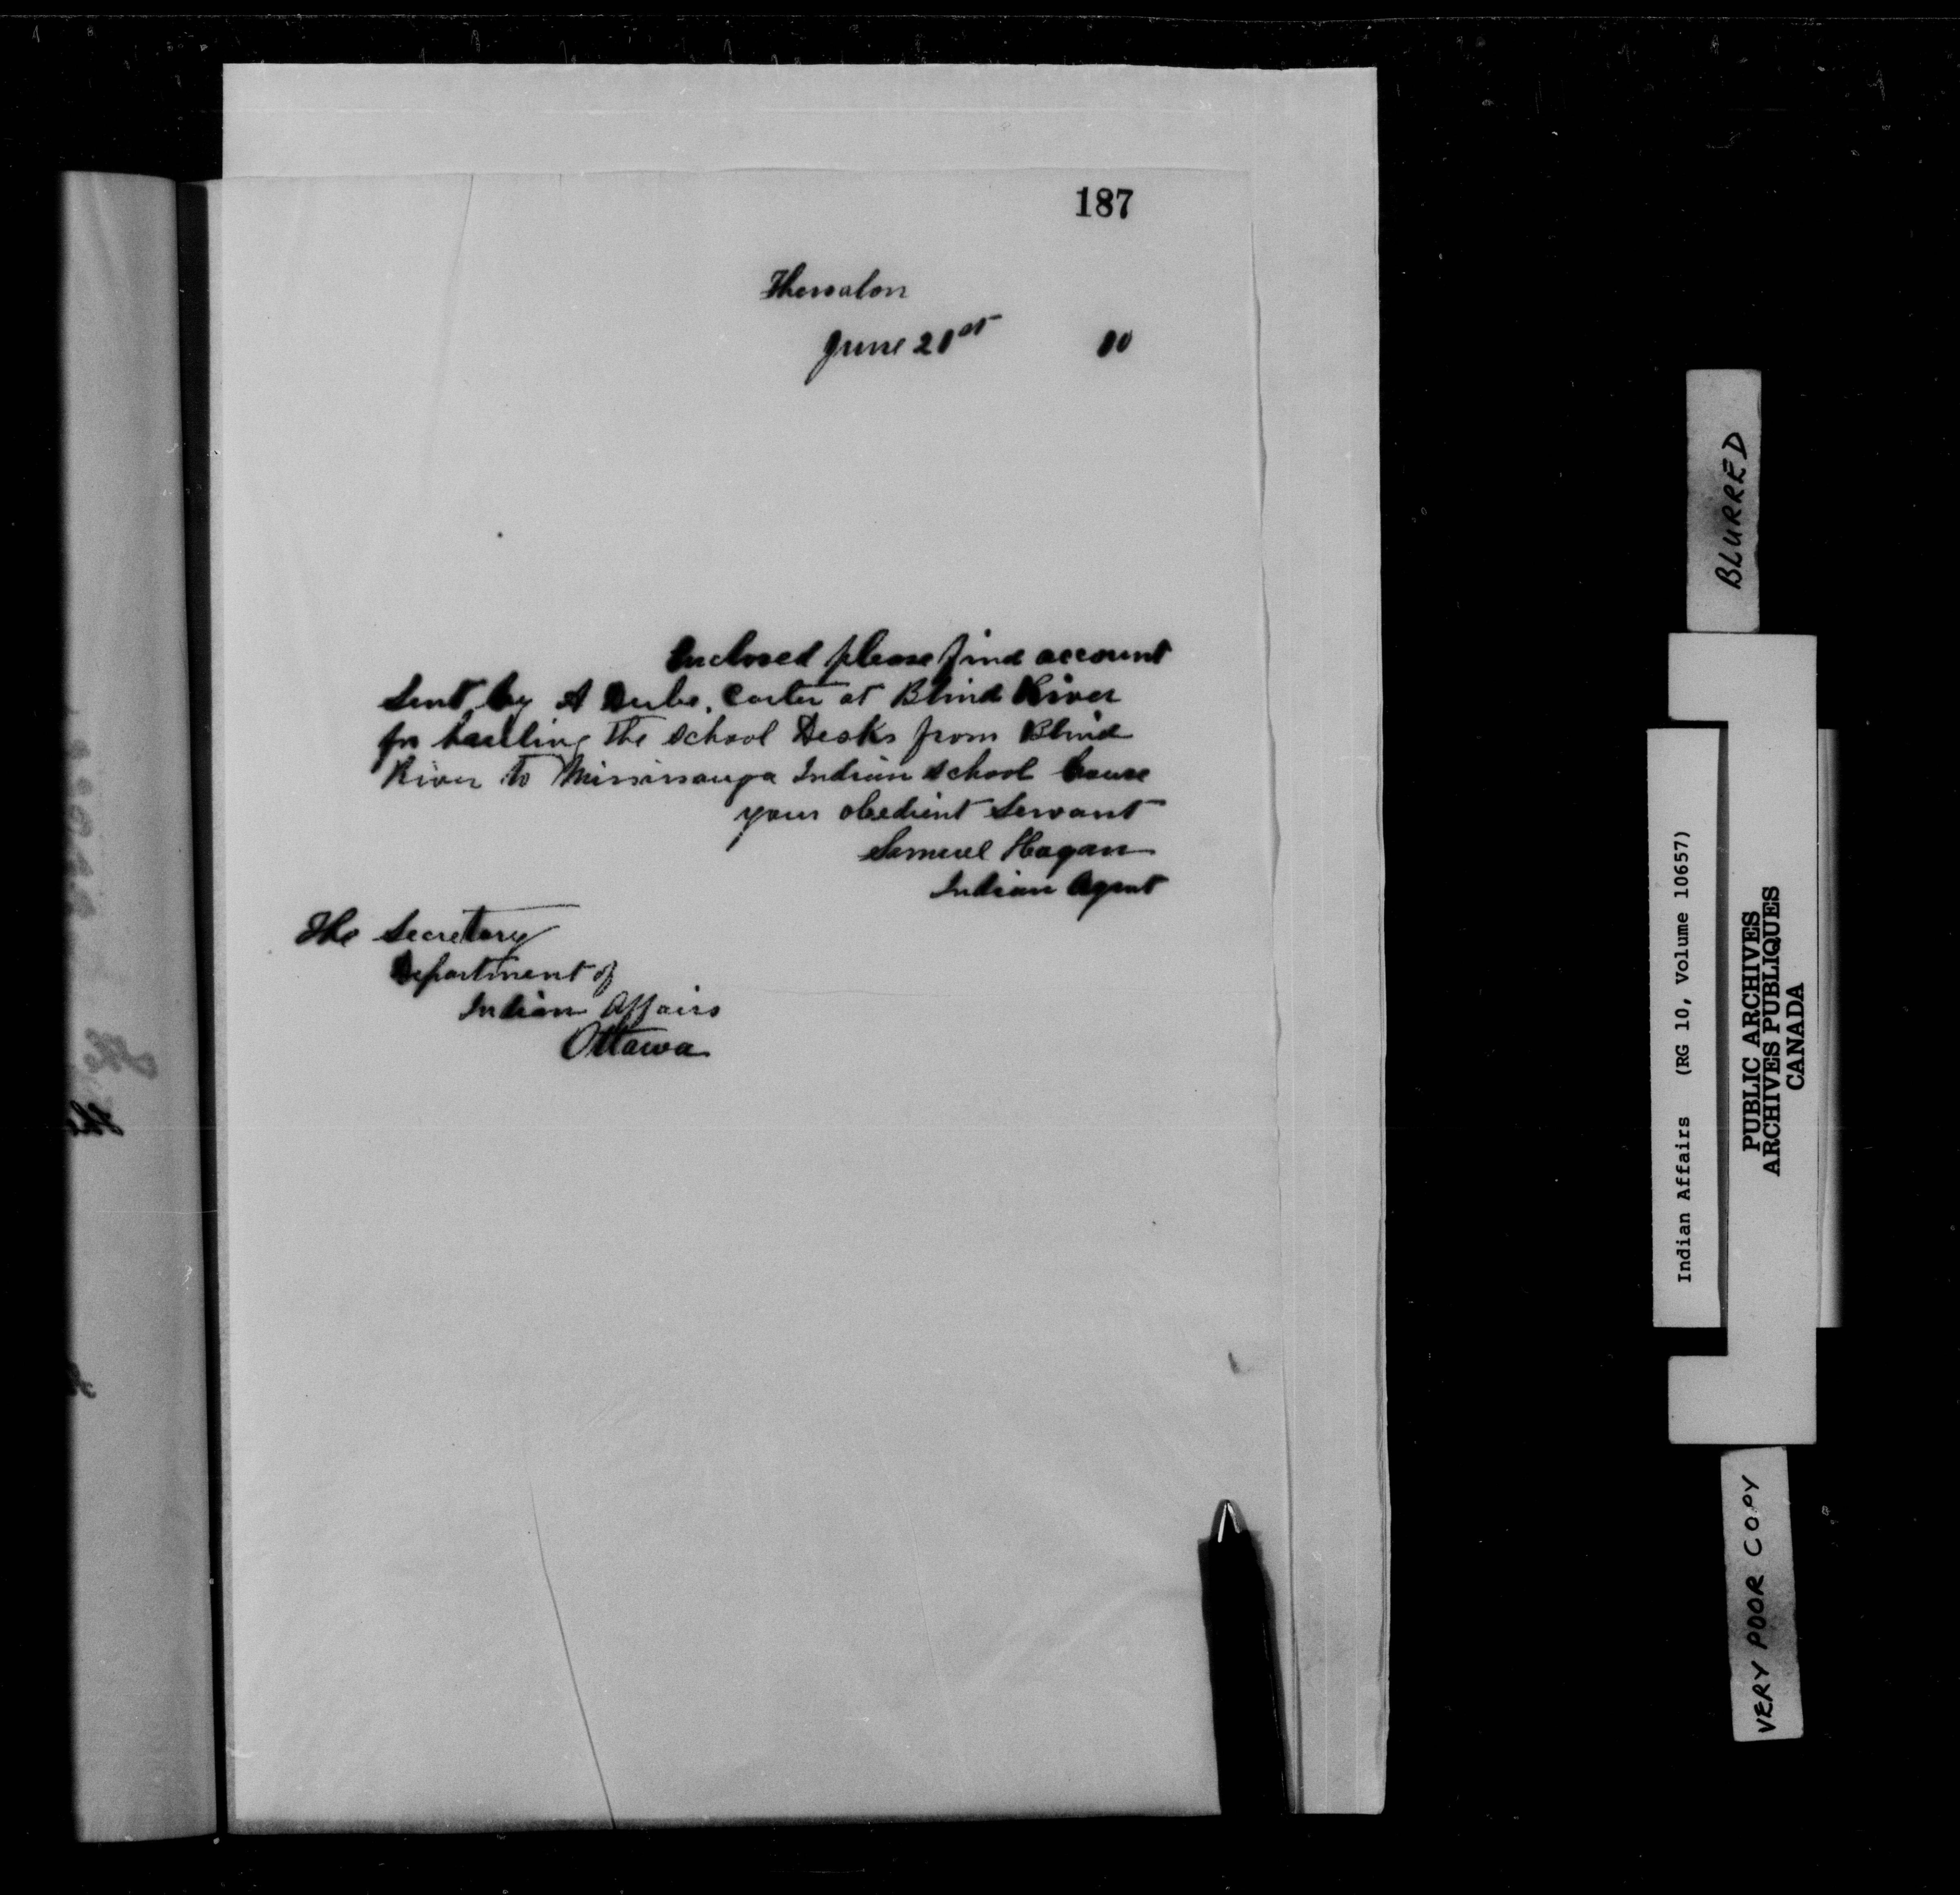 187
Thessalon
June 21st 10
Enclosed please find account
Sent by A Dube, Carter at Blind River
for hauling the School Desks from Blind
River to Mississauga Indian School house
your obedient Servant
Samuel Hagan
Indian Agent
The Secretary
Department of
Indian Affairs
Ottawa
BLURRED
Indian Affairs (RG 10, Volume 10657)
PUBLIC ARCHIVES
ARCHIVES PUBLIQUES
CANADA
VERY POOR COPY